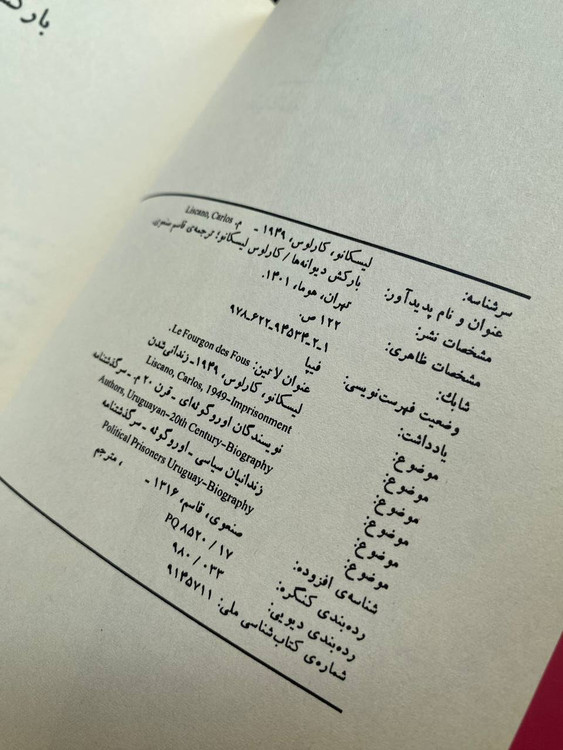 بارکش
سرشناسه: لیسکانو، کارلوس، ۱۹۴۹ - م. Liscano, Carlos
عنوان و نام پدیدآور: بارکش دیوانه‌ها / کارلوس لیسکانو؛ ترجمه‌ی قاسم صنعوی.
مشخصات نشر: تهران، هوما، ۱۴۰۱.
مشخصات ظاهری: ۱۲۲ ص.
شابک: ۹۷۸-۶۲۲-۹۴۵۳۴-۲-۱
وضعیت فهرست‌نویسی: فیپا
یادداشت: عنوان لاتین: Le Fourgon des Fous.
موضوع: لیسکانو، کارلوس، ۱۹۴۹- زندانی‌شدن
موضوع: Liscano, Carlos, 1949–Imprisonment
موضوع: نویسندگان اوروگوئه‌ای - قرن ۲۰ م. - سرگذشتنامه
موضوع: Authors, Uruguayan–20th Century–Biography
موضوع: زندانیان سیاسی - اوروگوئه - سرگذشتنامه
موضوع: Political Prisoners Uruguay–Biography
شناسه‌ی افزوده: صنعوی، قاسم، ۱۳۱۶ - ، مترجم
رده‌بندی کنگره: PQ ۸۵۲۰ / ۱۷
رده‌بندی دیویی: ۹۸۰ / ۰۳۳
شماره‌ی کتاب‌شناسی ملی: ۹۱۴۵۷۱۱